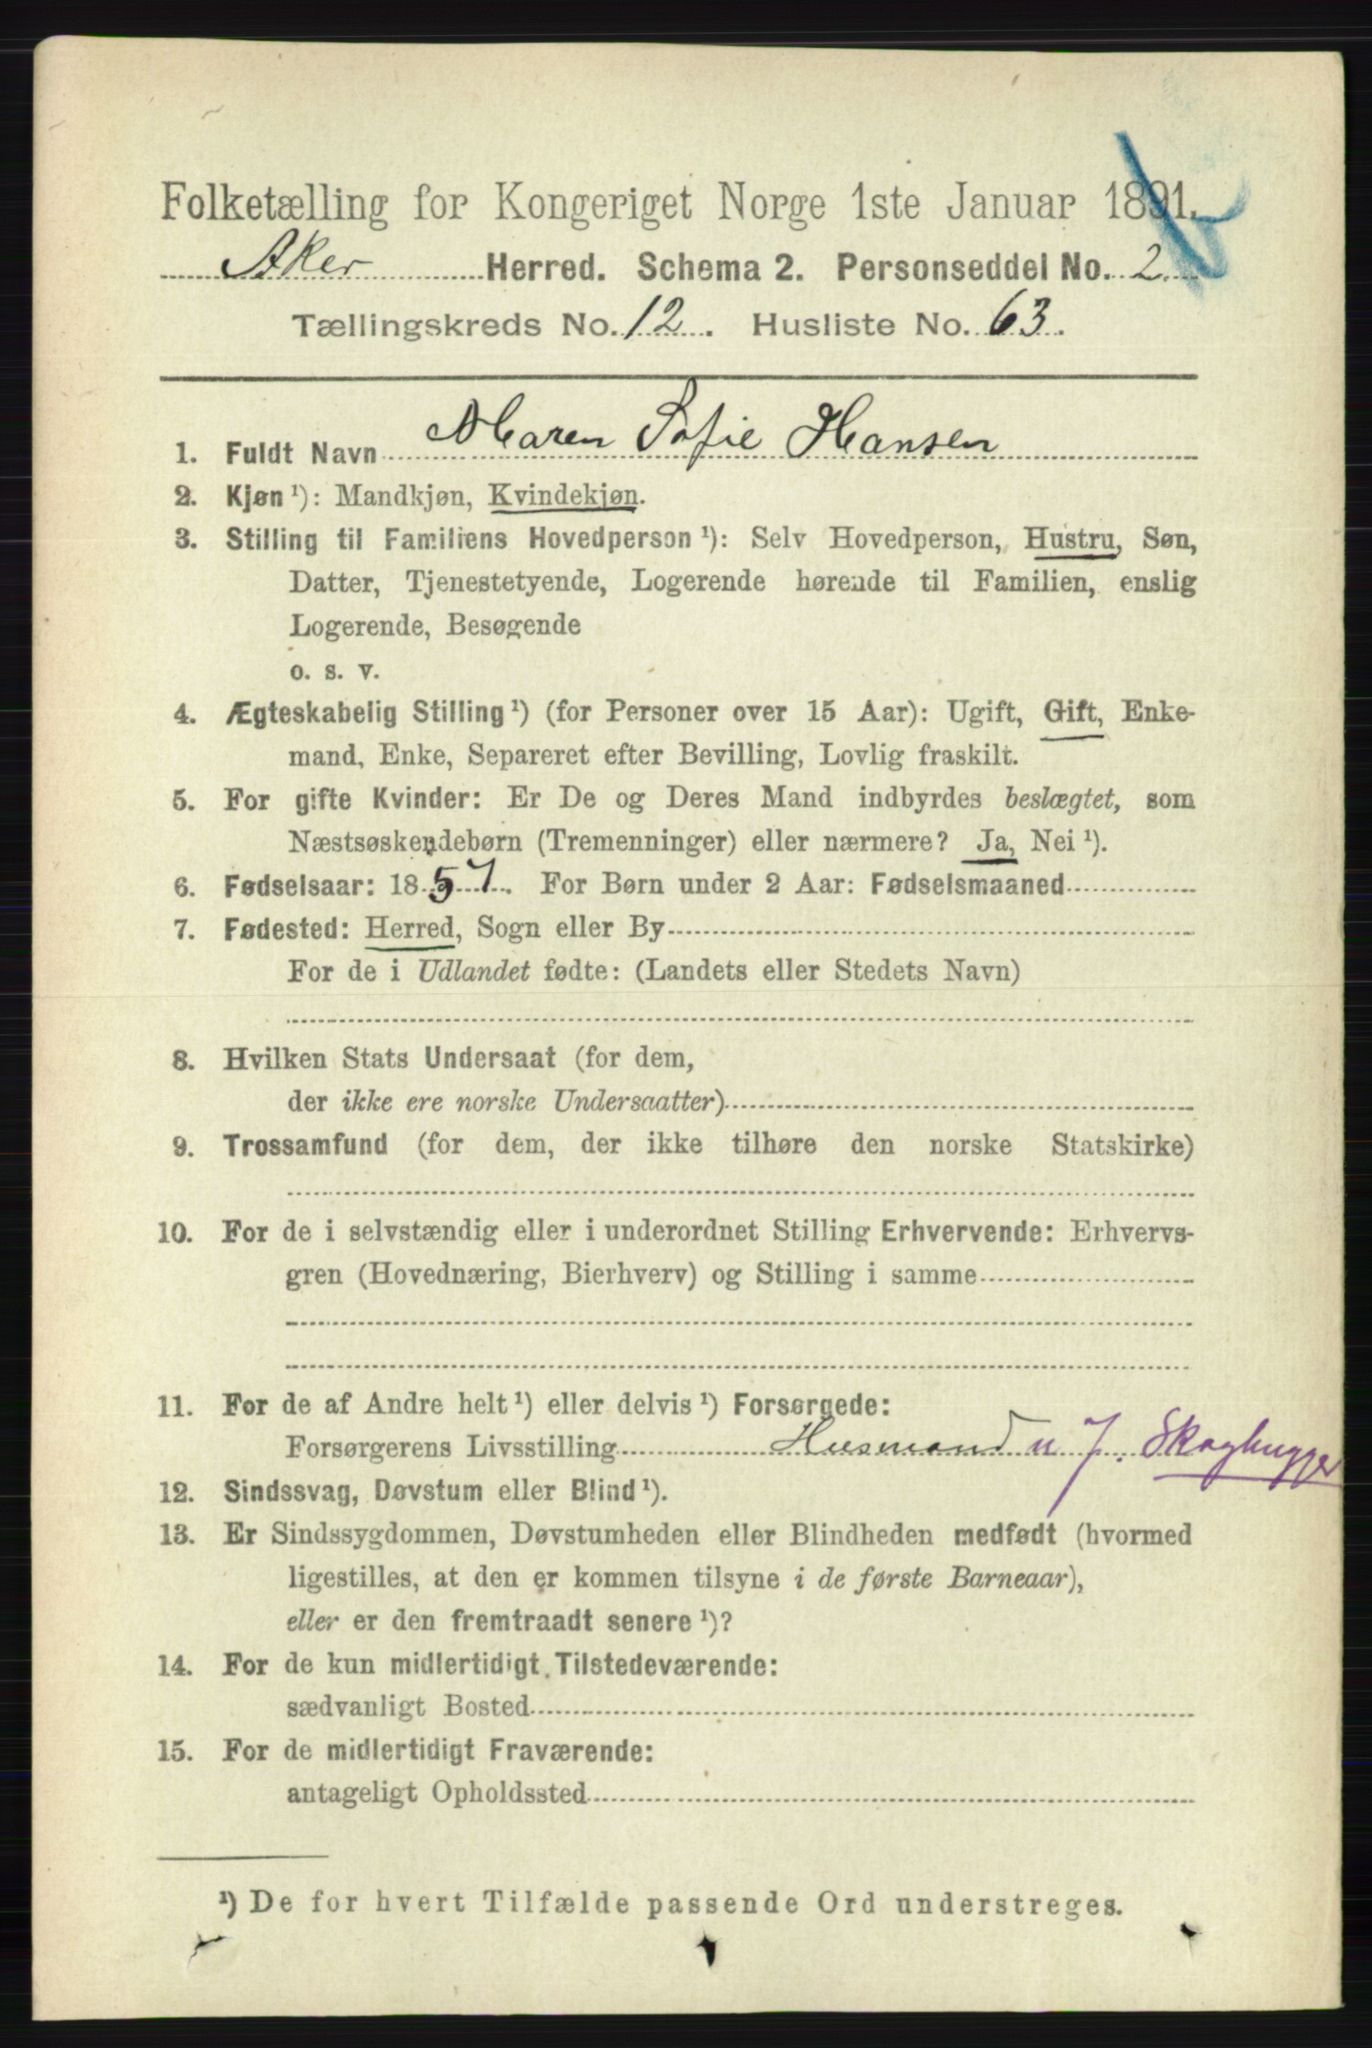 Folketælling for Kongeriget Norge 1ste Januar 1891.
Aker Herred. Schema 2. Personseddel No. 2
Tællingskreds No. 12. Husliste No. 63.
1. Fuldt Navn Maren Sofie Hansen
2. Kjøn ¹): Mandkjøn, Kvindekjøn.
3. Stilling til Familiens Hovedperson ¹): Selv Hovedperson, Hustru, Søn,
Datter, Tjenestetyende, Logerende hørende til Familien, enslig
Logerende, Besøgende
o. s. v.
4. Ægteskabelig Stilling ¹) (for Personer over 15 Aar): Ugift, Gift, Enke-
mand, Enke, Separeret efter Bevilling, Lovlig fraskilt.
5. For gifte Kvinder: Er De og Deres Mand indbyrdes beslægtet, som
Næstsøskendebørn (Tremenninger) eller nærmere? Ja, Nei ¹).
6. Fødselsaar: 1857. For Børn under 2 Aar: Fødselsmaaned
7. Fødested: Herred, Sogn eller By
For de i Udlandet fødte: (Landets eller Stedets Navn)
8. Hvilken Stats Undersaat (for dem,
der ikke ere norske Undersaatter)
9. Trossamfund (for dem, der ikke tilhøre den norske Statskirke)
10. For de i selvstændig eller i underordnet Stilling Erhvervende: Erhvervs-
gren (Hovednæring, Bierhverv) og Stilling i samme
11. For de af Andre helt ¹) eller delvis ¹) Forsørgede:
Forsørgerens Livsstilling Husmand u J. Skoghugger
12. Sindssvag, Døvstum eller Blind ¹).
13. Er Sindssygdommen, Døvstumheden eller Blindheden medfødt (hvormed
ligestilles, at den er kommen tilsyne i de første Barneaar),
eller er den fremtraadt senere ¹)?
14. For de kun midlertidigt Tilstedeværende:
sædvanligt Bosted
15. For de midlertidigt Fraværende:
antageligt Opholdssted
¹) De for hvert Tilfælde passende Ord understreges.